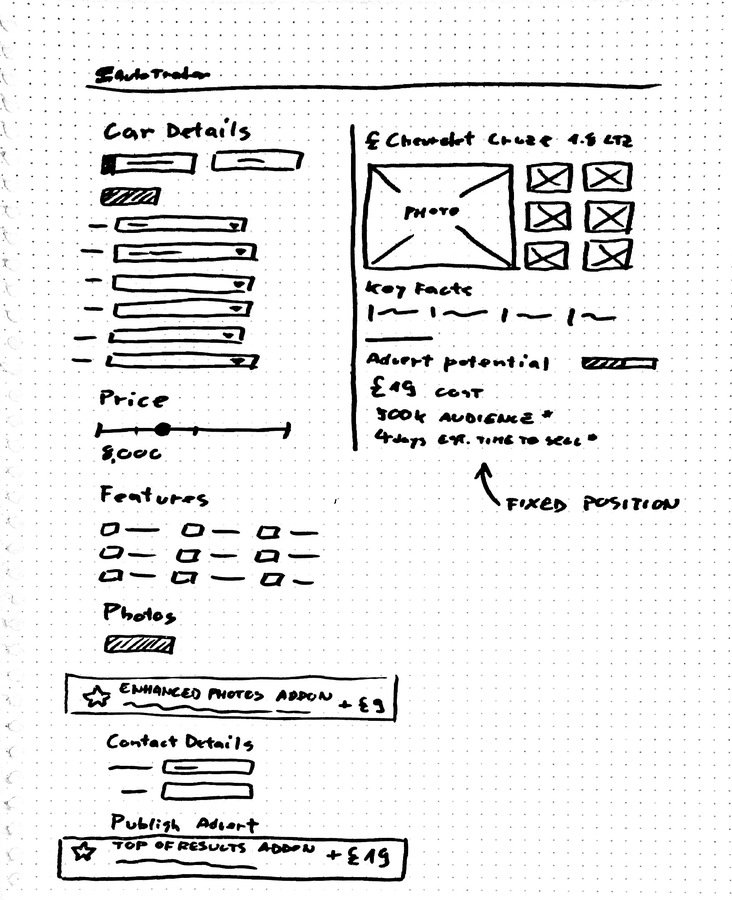 AutoTrader
Car Details
Price
8,000
Features
Photos
ENHANCED PHOTOS ADDON + £9
Contact Details
Publish Advert
TOP OF RESULTS ADDON + £19
£ Chevrolet Cruze 1.8 LTZ
PHOTO
Key Facts
Advert potential
£19 COST
300K AUDIENCE *
4 days EST. TIME TO SELL *
FIXED POSITION